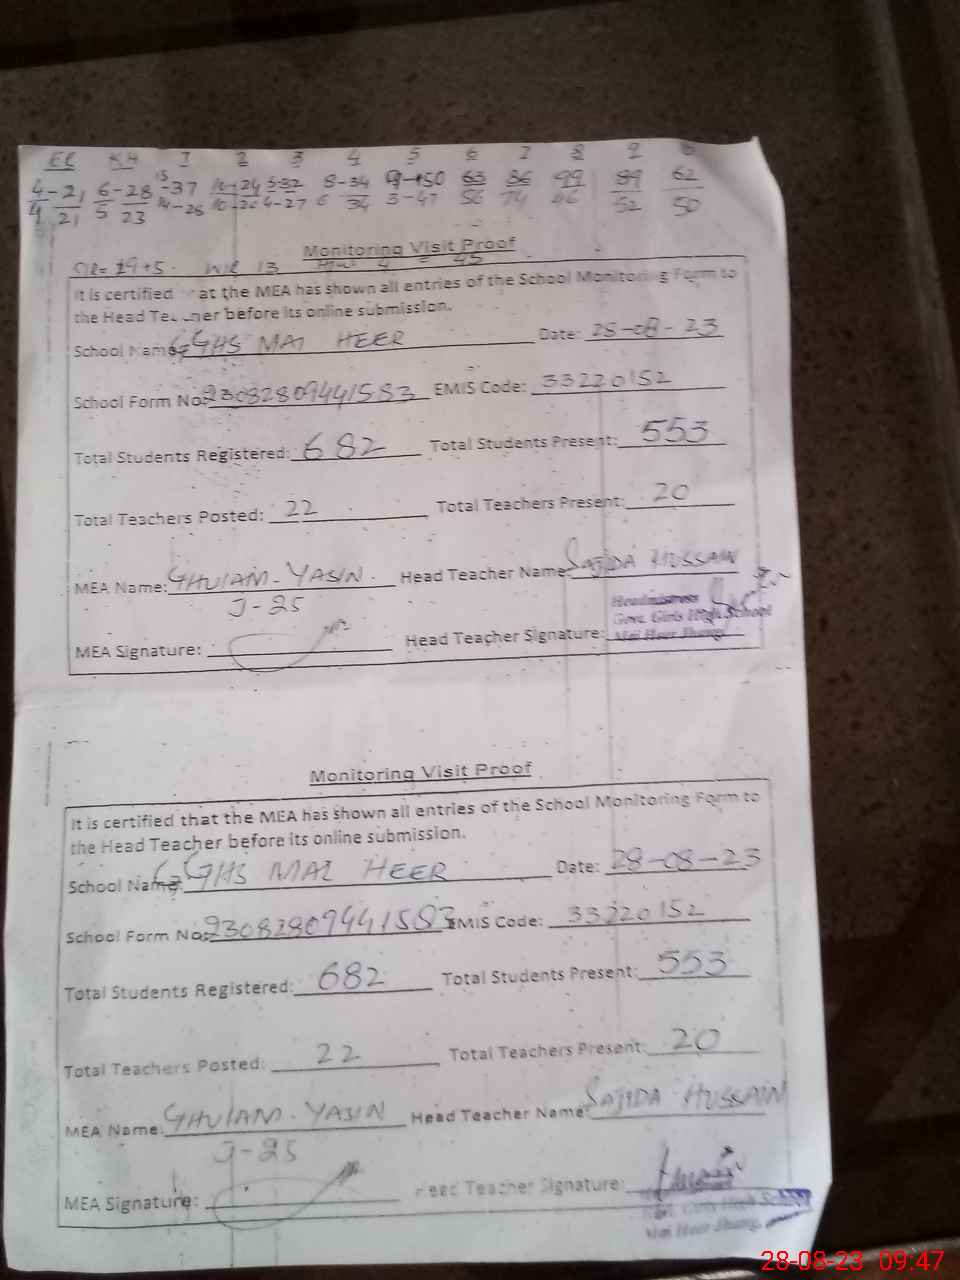 EC KH 1 2 3 4 5 6 7 8 9
4-21 6-28 -37 5-32 8-34 -50 63 86 99 89 62
4 21 5 23 14-26 10-20 4-27 6 34 3-47 56 74 52 50
Monitoring Visit Proof
It is certified at the MEA has shown all entries of the School Monitoring Form to
the Head Teacher before its online submission.
School Name: GGHS MAI HEER Date: 28-08-23
School Form No: 23082809441583 EMIS Code: 33220152
Total Students Registered: 682 Total Students Present: 553
Total Teachers Posted: 22 Total Teachers Present: 20
MEA Name: GHULAM-YASIN. Head Teacher Name: SAJIDA HUSSAIN
J-25
Headmistress
Govt. Girls High School
MEA Signature: Head Teacher Signature: Mai Heer Jhang.
Monitoring Visit Proof
It is certified that the MEA has shown all entries of the School Monitoring Form to
the Head Teacher before its online submission.
School Name: GGHS MAI HEER Date: 28-08-23
School Form No: 23082809441583 EMIS Code: 33220152
Total Students Registered: 682 Total Students Present: 553
Total Teachers Posted: 22 Total Teachers Present: 20
MEA Name: GHULAM-YASIN Head Teacher Name: SAJIDA HUSSAIN
J-25
MEA Signature: Head Teacher Signature:
Govt. Girls High School
Mai Heer Jhang.
28-08-23 09:47